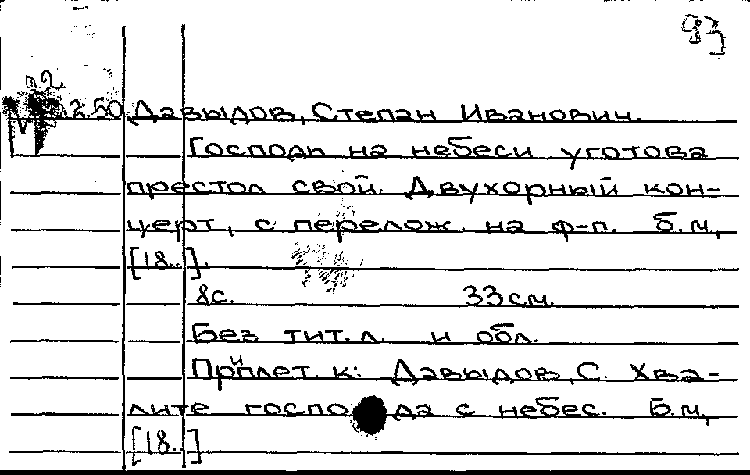 93
2
2.50 Давыдов, Степан Иванович.
Господь на небеси уготова
престол свой. Двухорный кон-
церт, с перелож. на ф-п. Б.м.,
[18..].
8с. 33см.
Без тит.л. и обл.
Приплет. к: Давыдов, С. Хва-
лите господа с небес. Б.м.,
[18..]